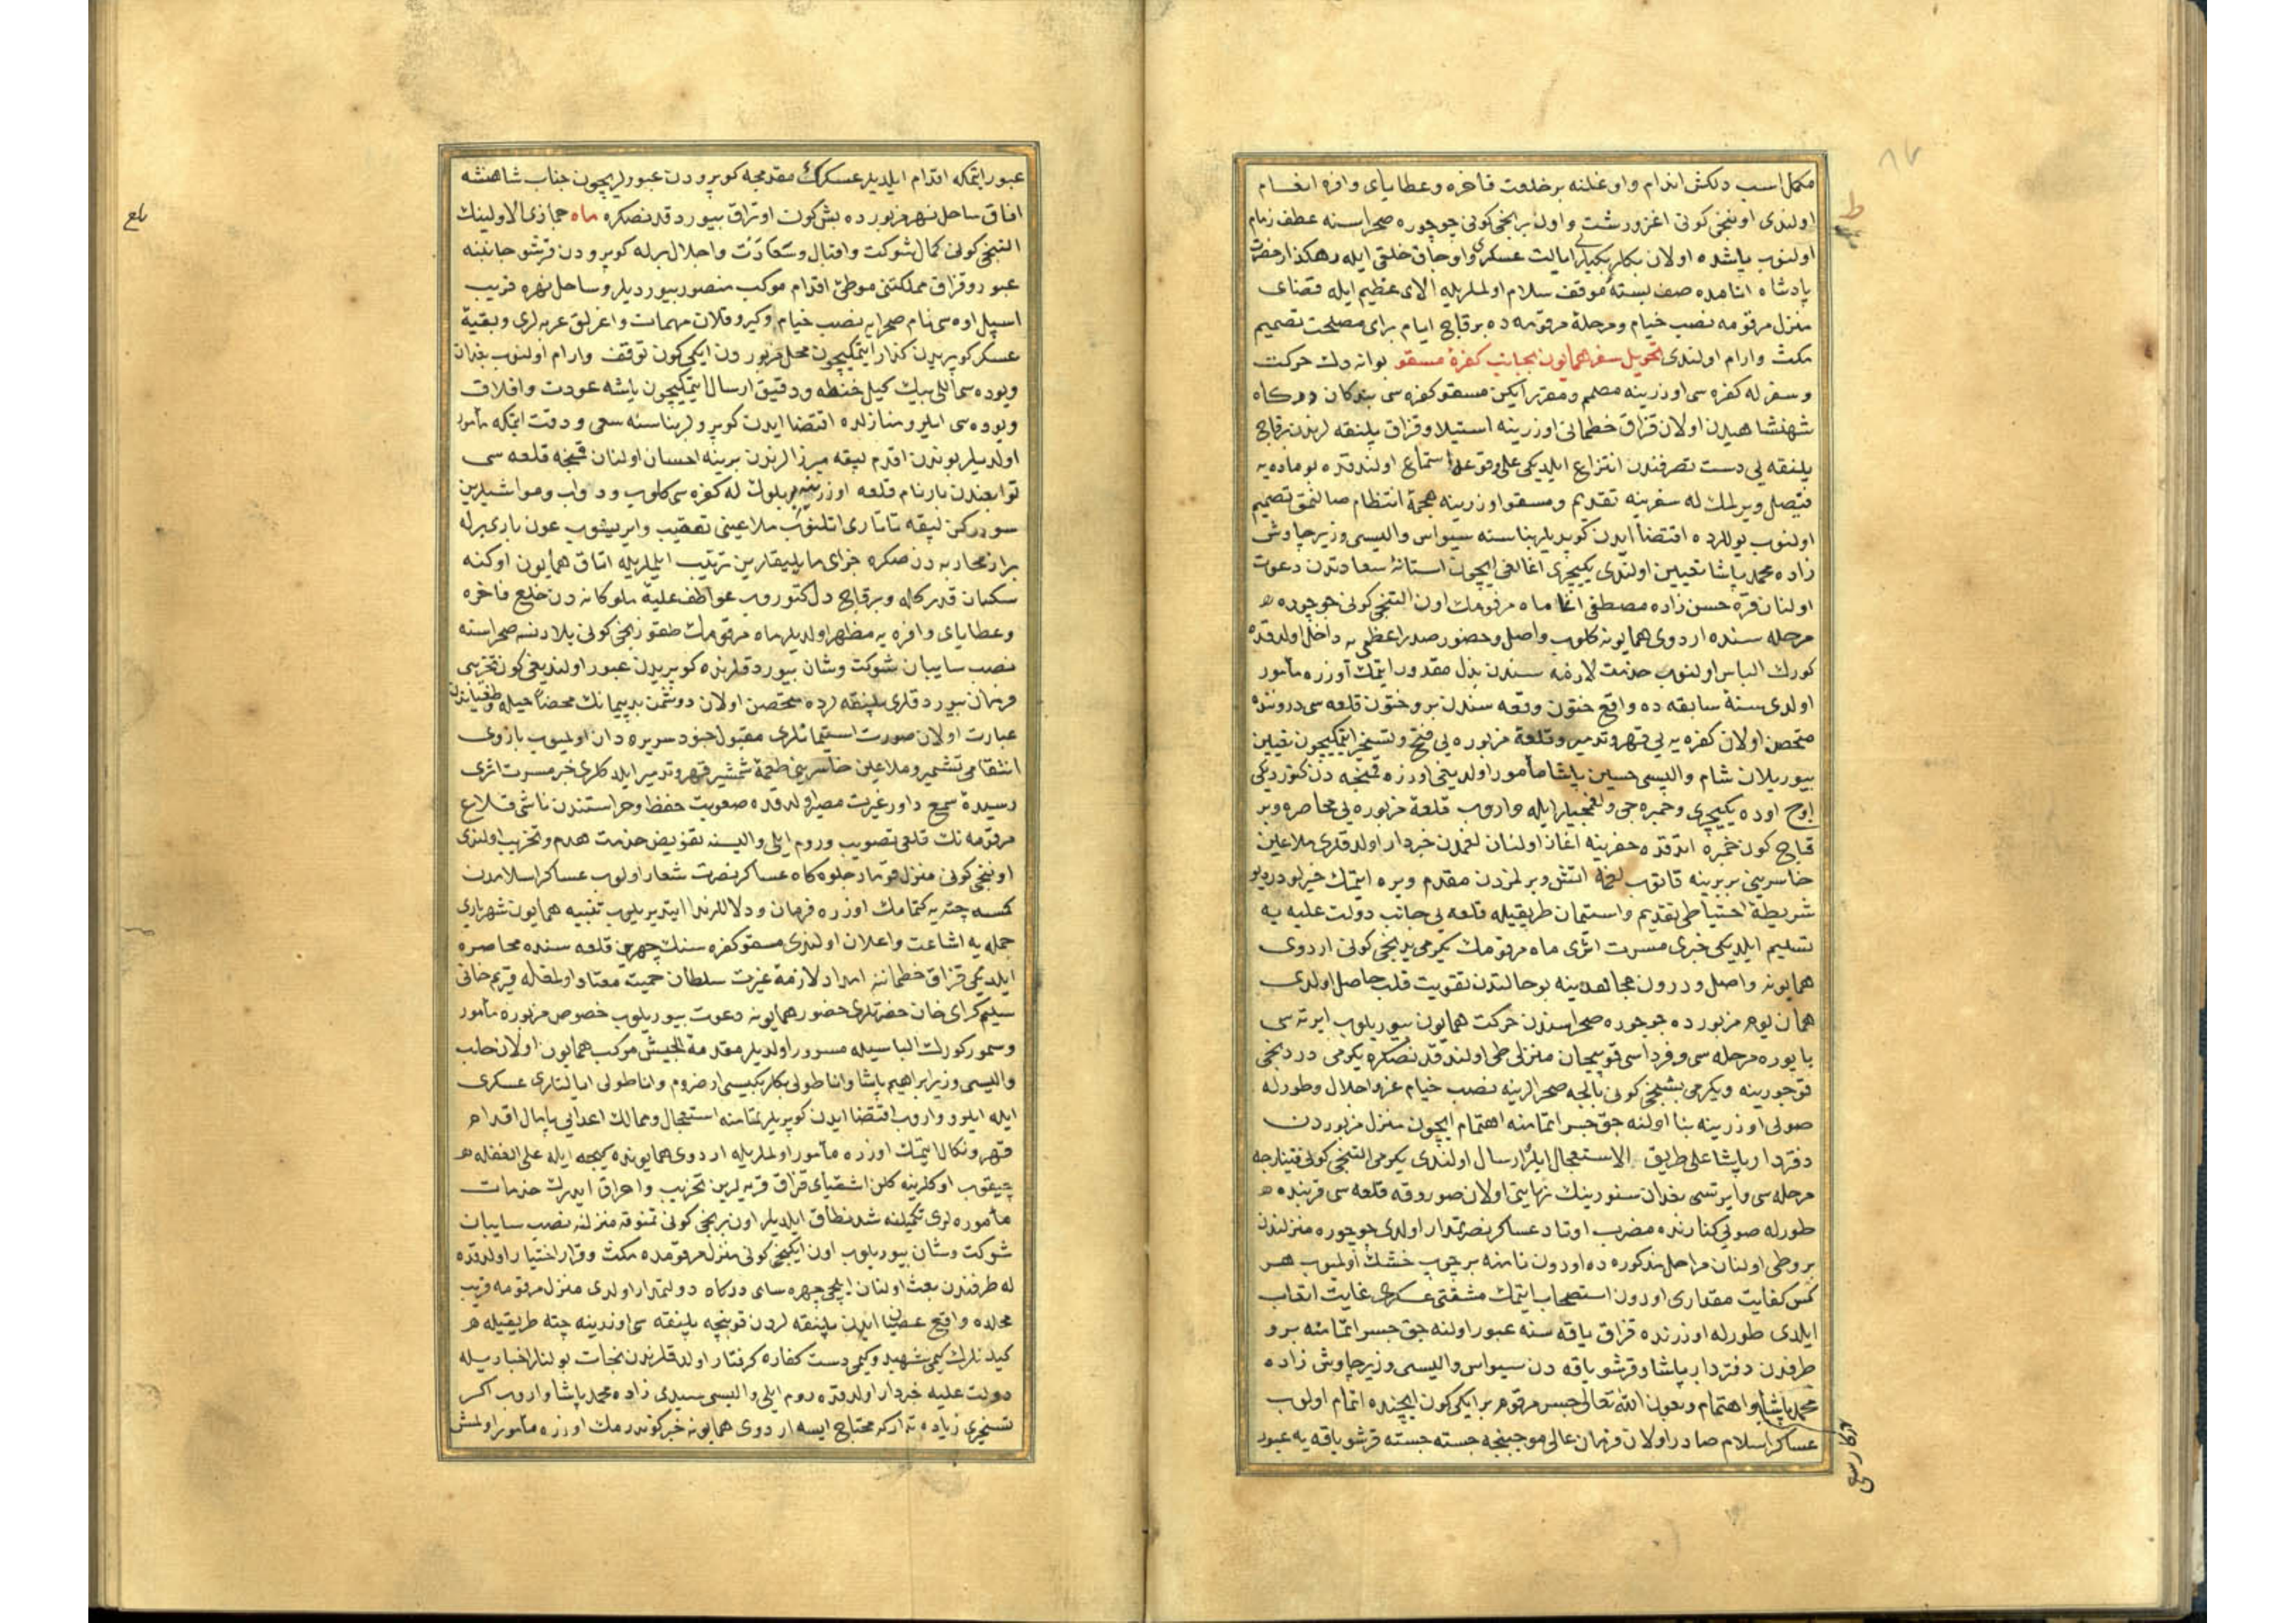 مكمل اسب دلكش اندام واوغلنه بر خلعت فاخره وعطاياى وافره انعام
اولندى اوننجى كونى اغزورشت واون برنجى كونى چوچوره صحراسنه عطف زمام
اولنوب ياشده اولان بكلربكيلر ايالت عسكرى واوجاق خلقى ايله رهكذار حضرت
پادشاه انامده صف بستهٔ موقف سلام اولملريله الاى عظيم ايله قصناى
منزل مرقومه نصب خيام ومرحلهٔ مرقومه ده برقاچ ايام براى مصلحت تصميم
مكث وارام اولندى تحويل سفر همايون بجانب كفرهٔ مسقو بوانه دك حركت
وسفر له كفره سى اوزرينه مصمم ومقرر ايكن مسقو كفره سى بندكان دركاه
شهنشاهيدن اولان قزاق خطمانى اوزرينه استيلا وقزاق پلنقه لرندن برقاچ
پلنقه يى دست تصرفندن انتزاع ايلديكى على وقوعها استماع اولندقده بو ماده يه
فيصل ويرلمك له سفرينه تقديم ومسقو اوزرينه هجمهٔ انتظام صالنمق تصميم
اولنوب يوللرده اقتضا ايدن كوپريلر بناسنه سيواس واليسى وزير چاوش
زاده محمد پاشا تعيين اولندى يكيچرى اغالغى ايچون استانهٔ سعادتدن دعوت
اولنان قره حسن زاده مصطفى اغا ماه مرقومك اون التنجى كونى چوچوره
مرحله سنده اردوى همايونه كلوب واصل وحضور صدر اعظمى يه داخل اولدقده
كورك الباس اولنوب خدمت لازمه سندن بذل مقدور ايتمك اوزره مأمور
اولدى سنهٔ سابقه ده واقع ختون وقعه سندن برو ختون قلعه سى درونده
متحصن اولان كفره يه يى قهر وتدمير وقلعهٔ مزبوره يى فتح وتسخير ايتمكيچون تعيين
بيوريلان شام واليسى حسين پاشا مأمور اولديغى اوزره قمنچه دن كتورديكى
اوچ اوده يكيچرى وخمبره جى ولغمجيلر ايله واروب قلعهٔ مزبوره يى محاصره وبر
قاچ كون خمبره اتدقده حفرينه اغاز اولنان لغمدن خبردار اولدقلرى ملاعين
خاسرينى بربرينه قاتوب لغمه اتش ويرلمزدن مقدم ويره ايتمك خيرلودر ديو
شريطهٔ احتياطى تقديم واستيمان طريقيله قلعه يى جانب دولت عليه يه
تسليم ايلديكى خبرى مسرت اثرى ماه مرقومك يكرمى برنجى كونى اردوى
همايونه واصل ودرون مجاهدينه بو حالتدن تقويت قلب حاصل اولدى
همان يوم مزبورده چوچوره صحراسندن حركت همايون بيوريلوب ايرته سى
بايوره مرحله سى وفرداسى قوسيجان منزلى طى اولندقدنصكره يكرمى دردنجى
قوجورينه ويكرمى بشنجى كونى بالچه صحرالرينه نصب خيام عز واجلال وطورله
صويى اوزرينه بنا اولنه جق جسر اتمامنه اهتمام ايچون منزل مزبوردن
دفتردار پاشا على طريق الاستعجال ايلرو ارسال اولندى يكرمى التنجى كونى فتينلرجه
مرحله سى وايرتسى بغدان سنورينك نهايتى اولان صوروقه قلعه سى قربنده
طورله صويى كنارنده مضرب اوتاد عساكر نصرتمدار اولدى چوچوره منزلندن
برو طى اولنان مراحل مذكوره ده اودون نامنه بر چوب خشك اولميوب هر
كس كفايت مقدارى اودون استصحاب ايتمك مشقتى عسكرى غايت اتعاب
ايلدى طورله اوزرنده قزاق ياقه سنه عبور اولنه جق جسر اتمامنه برو
طرفدن دفتردار پاشا وقرشو ياقه دن سيواس واليسى وزير چاوش زاده
محمد پاشا واهتمام وبعون الله تعالى جسر مرقوم بر ايكى كون ايچنده اتمام اولوب
عساكر اسلام صادر اولان فرمان عالى موجبنجه جسته جسته قرشو ياقه يه عبور
عبور ايتمكه اقدام ايلديلر عسكرك مقدمجه كوپرودن عبورلريچون جناب شاهنشه
افاق ساحل نهر مزبورده بش كون اوتراق بيوردقدنصكره ماه جمازى الاولينك
التنجى كونى كمال شوكت واقبال وسعادت واجلال برله كوپرودن قرشو جانبنه
عبور وقزاق مملكتنى موطئ اقدام موكب منصور بيورديلر وساحل نهره قريب
اسپل اوه سى نام صحرايه نصب خيام وكيرو قلان مهمات واغرلق عربه لرى وبقيهٔ
عسكر كوپريدن كذار ايتمكيچون محل مزبورده ايكى كون توقف وارام اولنوب بغدان
ويوده سى اللى بيك كيل خنطه ودقيق ارسال ايتمكيچون ياشه عودت وافلاق
ويوده سى ايلرو منازلده اقتضا ايدن كوپرولر بناسنه سعى ودقت ايتمكه مأمور
اولديلر بوندن اقدم لپقه ميرزالرندن برينه احسان اولنان قمنچه قلعه سى
توابعندن بار نام قلعه اوزرينه بر بلوك له كفره سى كلوب ودواب ومواشيلرين
سوررکن لپقه تاتارى اتلنوب ملاعينى تعقيب وايريشوب عون بارى برله
براز محاربه دنصكره جزاى مايليقلرين ترتيب ايلملريله اتاق همايون اوكنه
سكسان قدر كله وبرقاچ دل كتوروب عواطف عليهٔ ملوكانه دن خلع فاخره
وعطاياى وافره يه مظهر اولديلر ماه مرقومك طقوزنجى كونى يلادنسه صحراسنه
نصب سايبان شوكت وشان بيوردقلرنده كوپريدن عبور اولنديغى كون تخريبى
فرمان بيوردقلرى پلنقه لرده متحصن اولان دوشمن بدپيمانك محضا حيله وطغياندن
عبارت اولان صورت استيمانلرى مقبول جنود سريره دان اولميوب بازوى
انتقامى تشمير وملاعين خاسرينى طعمهٔ شمشير قهر وتدمير ايلدكلرى خبر مسرت اثرى
رسيدهٔ سمع داور غيرت مصير اولدقده صعوبت حفظ وحراستندن ناشى قلاع
مرقومه نك قلعى تصويب وروم ايلى واليسنه تفويض خدمت هدم وتخريب اولندى
اوننجى كونى منزل قومار جلوه كاه عساكر نصرت شعار اولوب عساكر اسلامدن
كمسه چته يه كتمامك اوزره فرمان ودلاللر ندا ايتديريلوب تنبيه همايون شهريارى
جمله يه اشاعت واعلان اولندى مسقو كفره سنك چهرين قلعه سنده محاصره
ايلديكى قزاق خطماننه امداد لازمهٔ غيرت سلطان حميت معتاد اولمغله قريم خانى
سليم كراى خان حضرتلرى حضور همايونه دعوت بيوريلوب خصوص مزبوره مأمور
وسمور كورك الباسيله مسرور اولديلر مقدمة الجيش موكب همايون اولان حلب
واليسى وزير ابراهيم پاشا واناطولى بكلربكيسى ارضروم واناطولى ايالتلرى عسكرى
ايله ايلرو واروب اقتضا ايدن كوپريلر اتمامنه استعجال وممالك اعدايى پايمال اقدام
قهر ونكال ايتمك اوزره مأمور اولملريله اردوى همايونده كيجه ايله على الغفله
چيقوب اوكلرينه كلن اشقياى قزاق قريه لرين تخريب واحراق ايدرك خدمات
مأموره لرى تكميلنه شد نطاق ايلديلر اون برنجى كونى تمنوقه منزلنه نصب سايبان
شوكت وشان بيوريلوب اون ايكنجى كونى منزل مرقومده مكث وقرار اختيار اولدقده
له طرفندن بعث اولنان ايلچى چهره ساى دركاه دولتمدار اولدى منزل مرقومه قريب
محلده واقع عصيان ايدن پلنقه لردن قوينچه پلنقه سى اوزرينه چته طريقيله
كيدنلرك كيمى شهيد وكيمى دست كفاره كرفتار اولدقلرندن نجات بولنلر اخباريله
دولت عليه خبردار اولدقده روم ايلى واليسى سيدى زاده محمد پاشا واروب اكر
تسخيرى زياده تداركه محتاج ايسه اردوى همايونه خبر كوندرمك اوزره مأمور اولمش